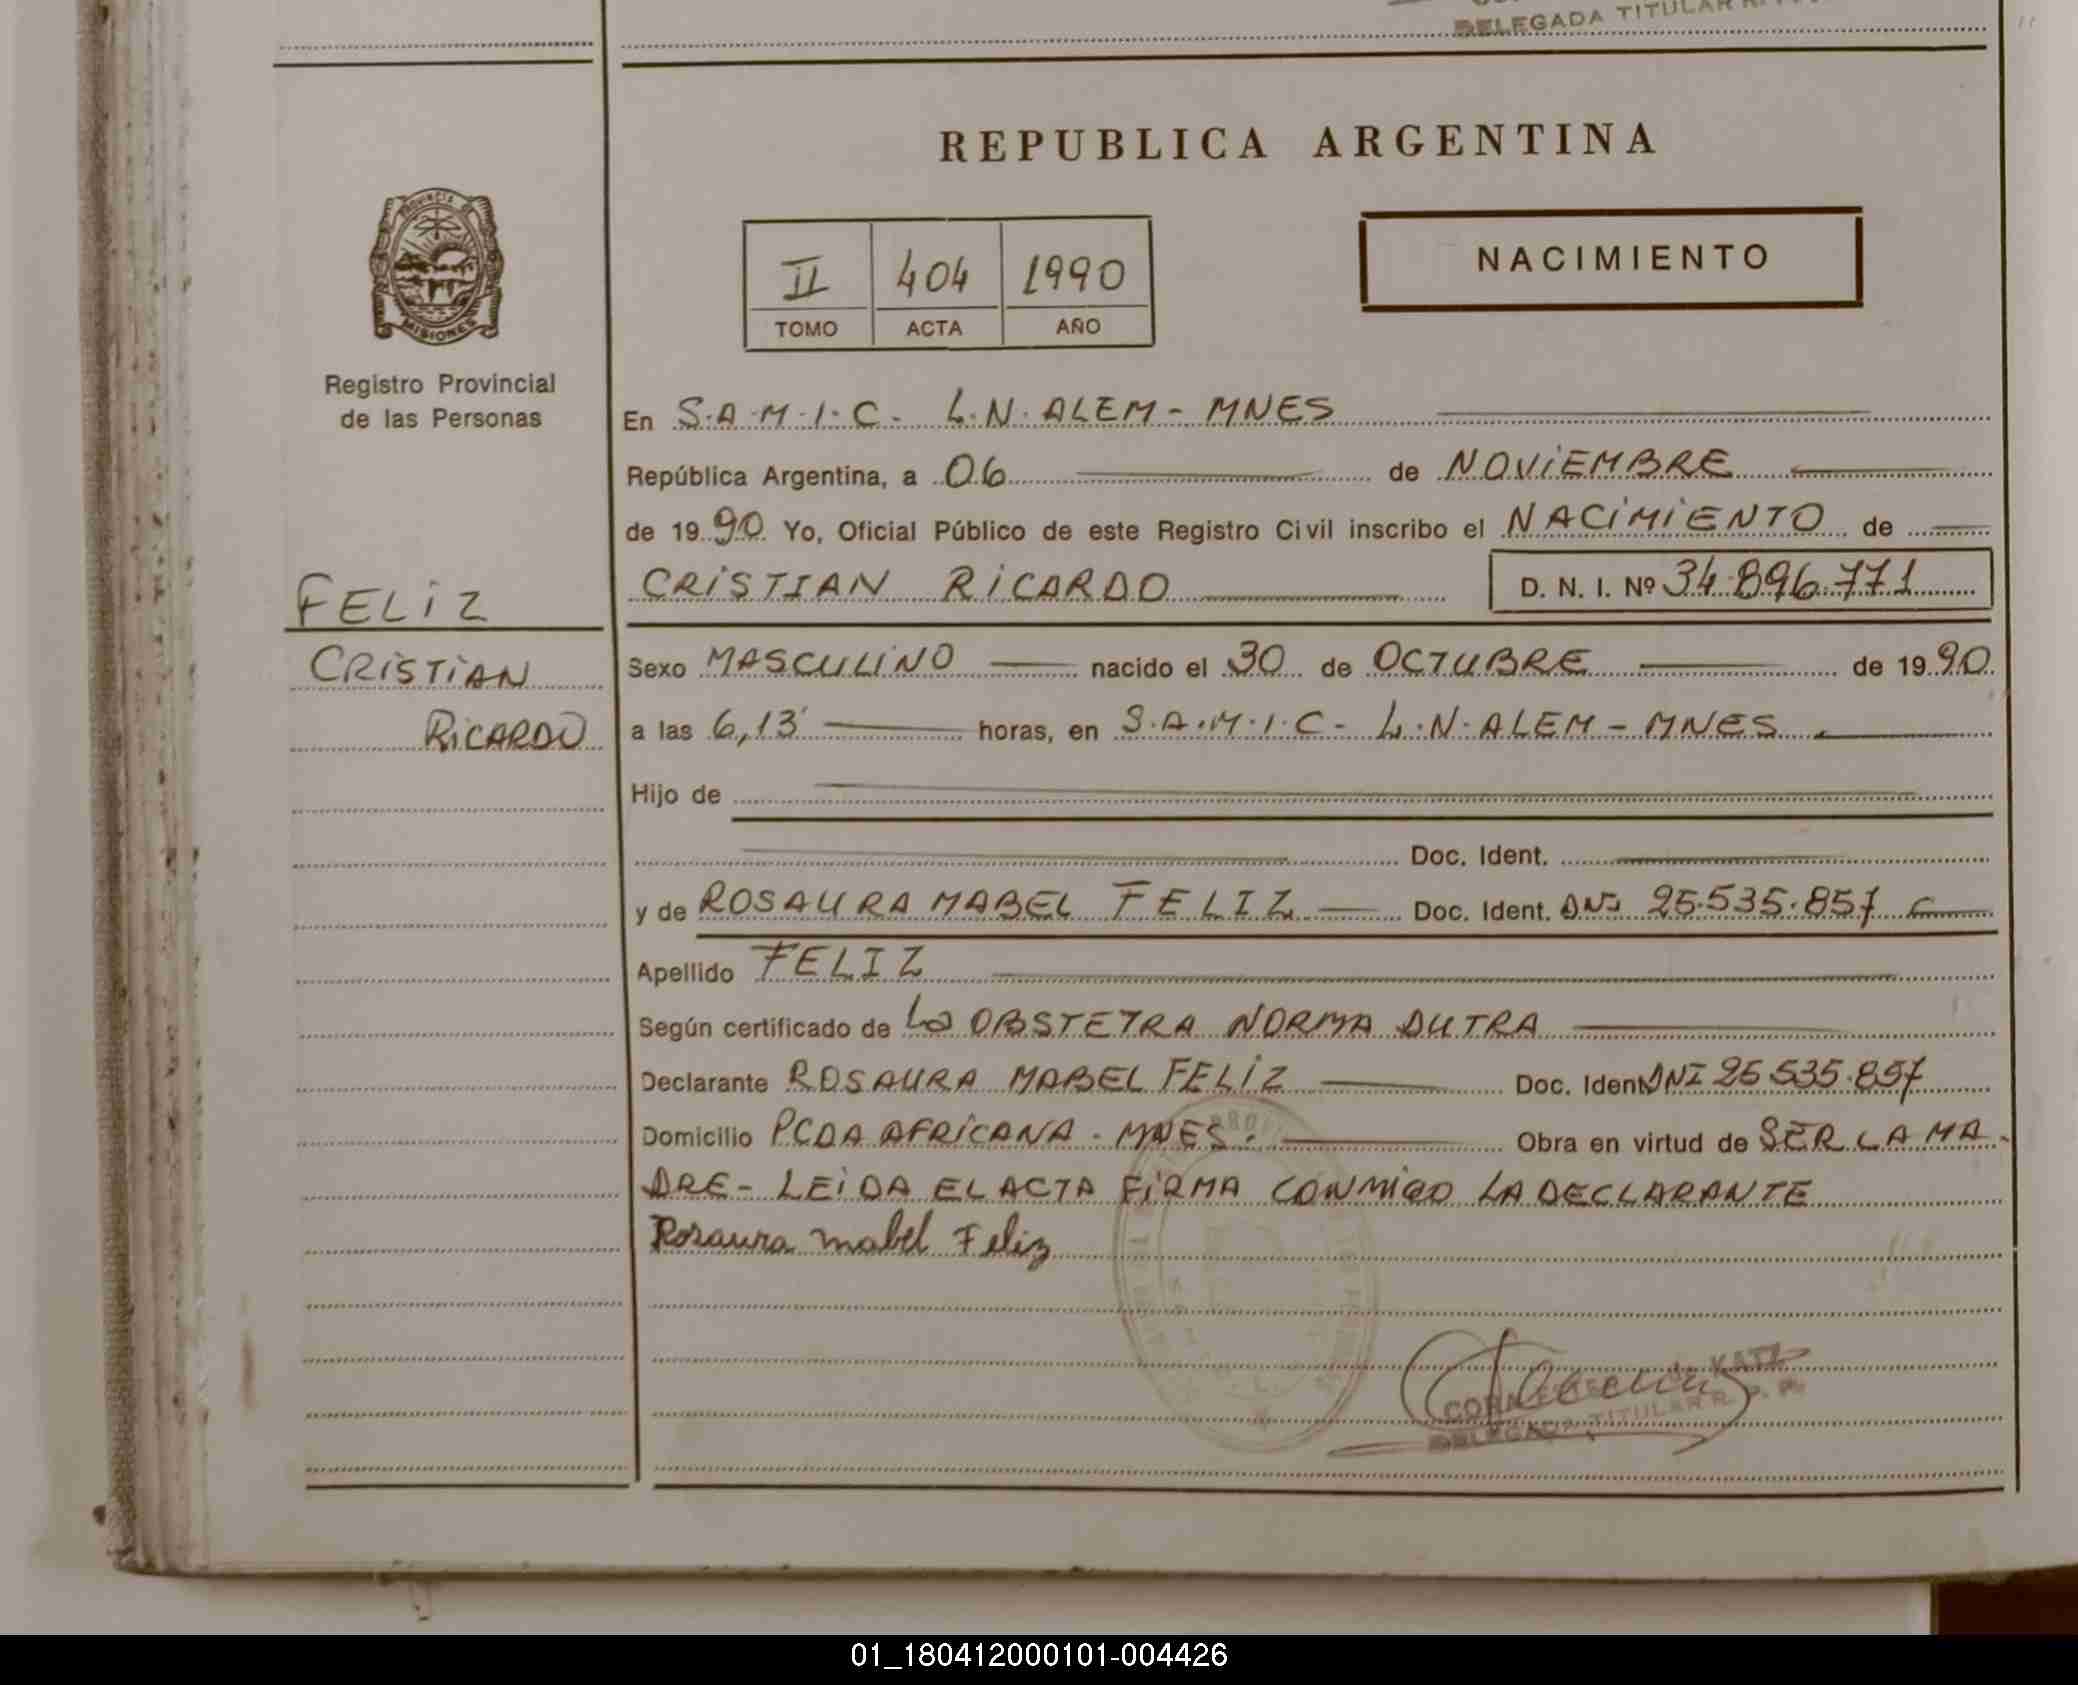 DELEGADA TITULAR R.
REPUBLICA ARGENTINA
PROVINCIA DE
MISIONES
Registro Provincial
de las Personas
II 404 1990
TOMO ACTA AÑO
NACIMIENTO
En S.A.M.I.C. L.N. ALEM - MNES
República Argentina, a 06 de NOVIEMBRE
de 1990 Yo, Oficial Público de este Registro Civil inscribo el NACIMIENTO de
CRISTIAN RICARDO D. N. I. Nº 34.896.771
FELIZ
CRISTIAN
RICARDO
Sexo MASCULINO nacido el 30 de OCTUBRE de 1990
a las 6,13 horas, en S.A.M.I.C - L.N. ALEM - MNES
Hijo de
Doc. Ident.
y de ROSAURA MABEL FELIZ Doc. Ident. DNI 25.535.857
Apellido FELIZ
Según certificado de La OBSTETRA NORMA DUTRA
Declarante ROSAURA MABEL FELIZ Doc. Ident DNI 25 535.857
Domicilio PCDA AFRICANA - MNES. Obra en virtud de SER LA MA-
DRE - LEIDA EL ACTA FIRMA CONMIGO LA DECLARANTE
Rosaura mabel Feliz
KATZ
DELEGADA TITULAR R. P. P.
01_180412000101-004426